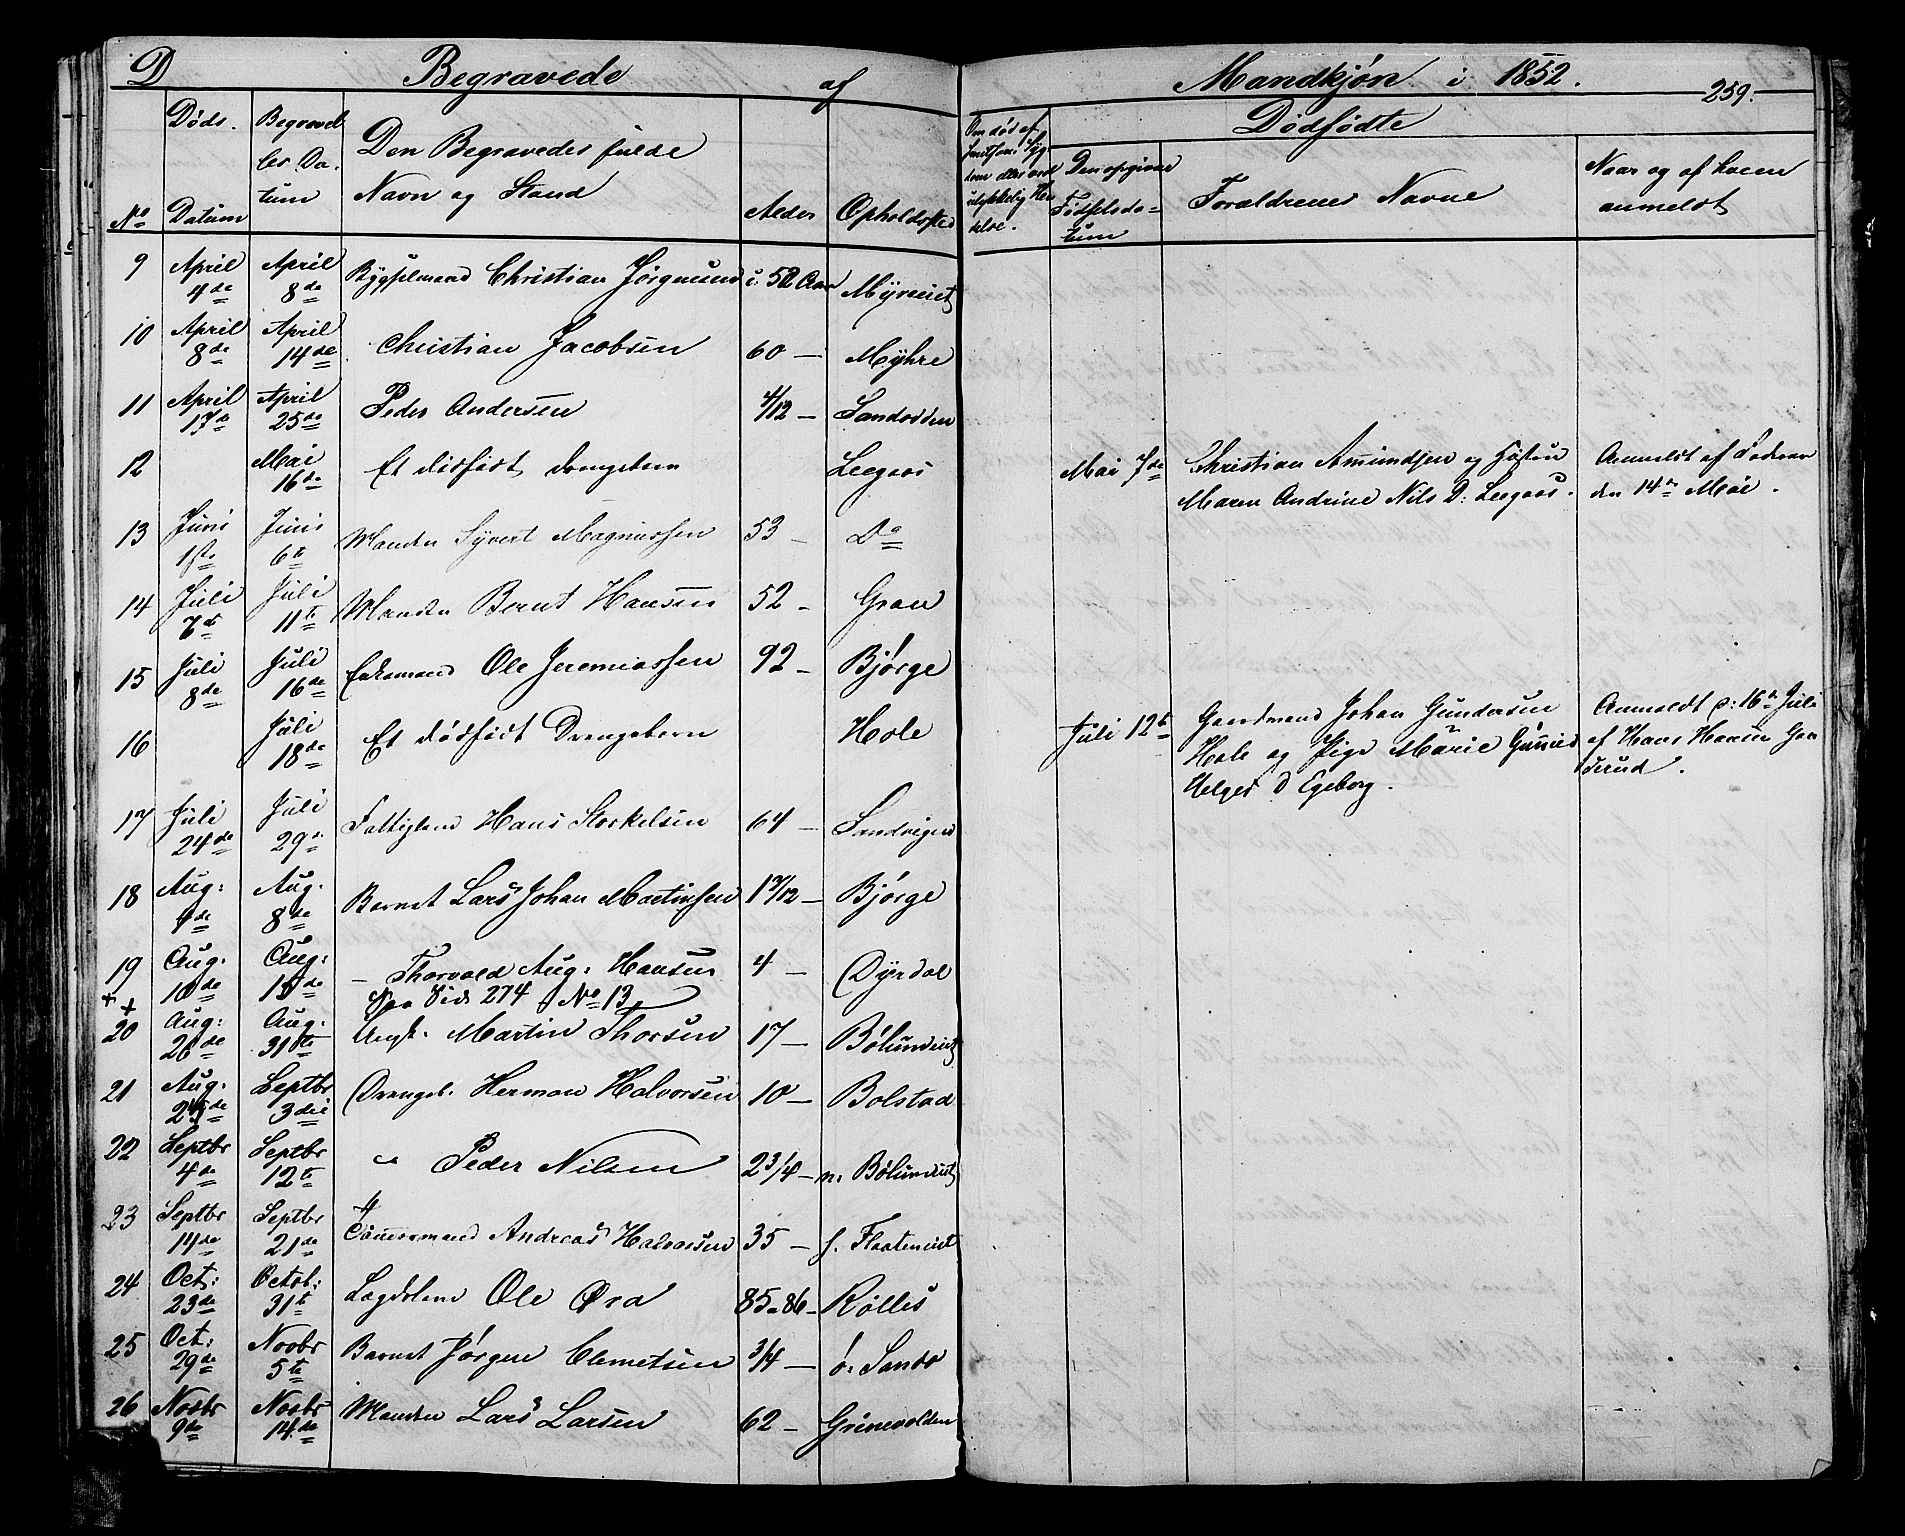 D Begravede af Mandkjøn i 1852. 259.
No Døds Datum Begravelses Datum Den Begravedes fulde Navn og Stand Alder Opholdssted
Dødfødte
Den opgivne Fødselsdatum Forældrenes Navne Naar og af hvem anmeldt
9 April 4de April 8de Christian Jørgensen 52 Aar
10 April 8de April 14de Christian Jacobsen 60 — Myhre
11 April 17de April 25de Peder Andersen 4/12 — Sandodden
12 Mai 16de Et dødfødt Drengebarn Leegaas
Mai 7de Christian Amundsen og Hustru Maren Andrine Nils D: Leegaas.
Anmeldt af Faderen den 14de Mai.
13 Juni 1ste Juni 6te Manden Syvert Magnussen 53 — Do
14 Juli 7de Juli 11te Manden Bernt Hansen 52 — Gran
15 Juli 8de Juli 16de Enkemand Ole Jeremiassen 92 — Bjørge
16 Juli 18de Et dødfødt Drengebarn Hole
Juli 12te Gaardmand Johan Gundersen Hole og Pige Marie
Helges D Egeborg.
Anmeldt d: 16de Juli af Hans Hansen
17 Juli 24de Juli 29de Fattiglem Hans Storkelsen 64 — Sandvigen
18 Aug: Aug. 8de Barnet Lars Johan Martinsen 1 7/12 — Bjørge
19 Aug: 10de Aug: 15de — Thorvald Aug: Hansen 4 — Dyrdal
++ Side 274 No 13
20 Aug: 26de Aug: 31te Ungk. Martin Thorsen 17 —
21 Aug. Septbr 3die Drengeb. Herman Halvorsen 10 — Bolstad
22 Septbr 4de Septbr 12te " Peder Nilsen 2 3/4 — n:
23 Septbr 14de Septbr 21de Andreas Halvorsen 35 —
24 Oct: 23de Octob: 31te Lægdslem Ole Øra 85 a 86 — Rølles
25 Oct: 29de Novbr 5te Barnet Jørgen Clemetsen 3/4 — ø: Sando
26 Novbr 9de Novbr 14de Manden Lars Larsen 62 — Grinevolden